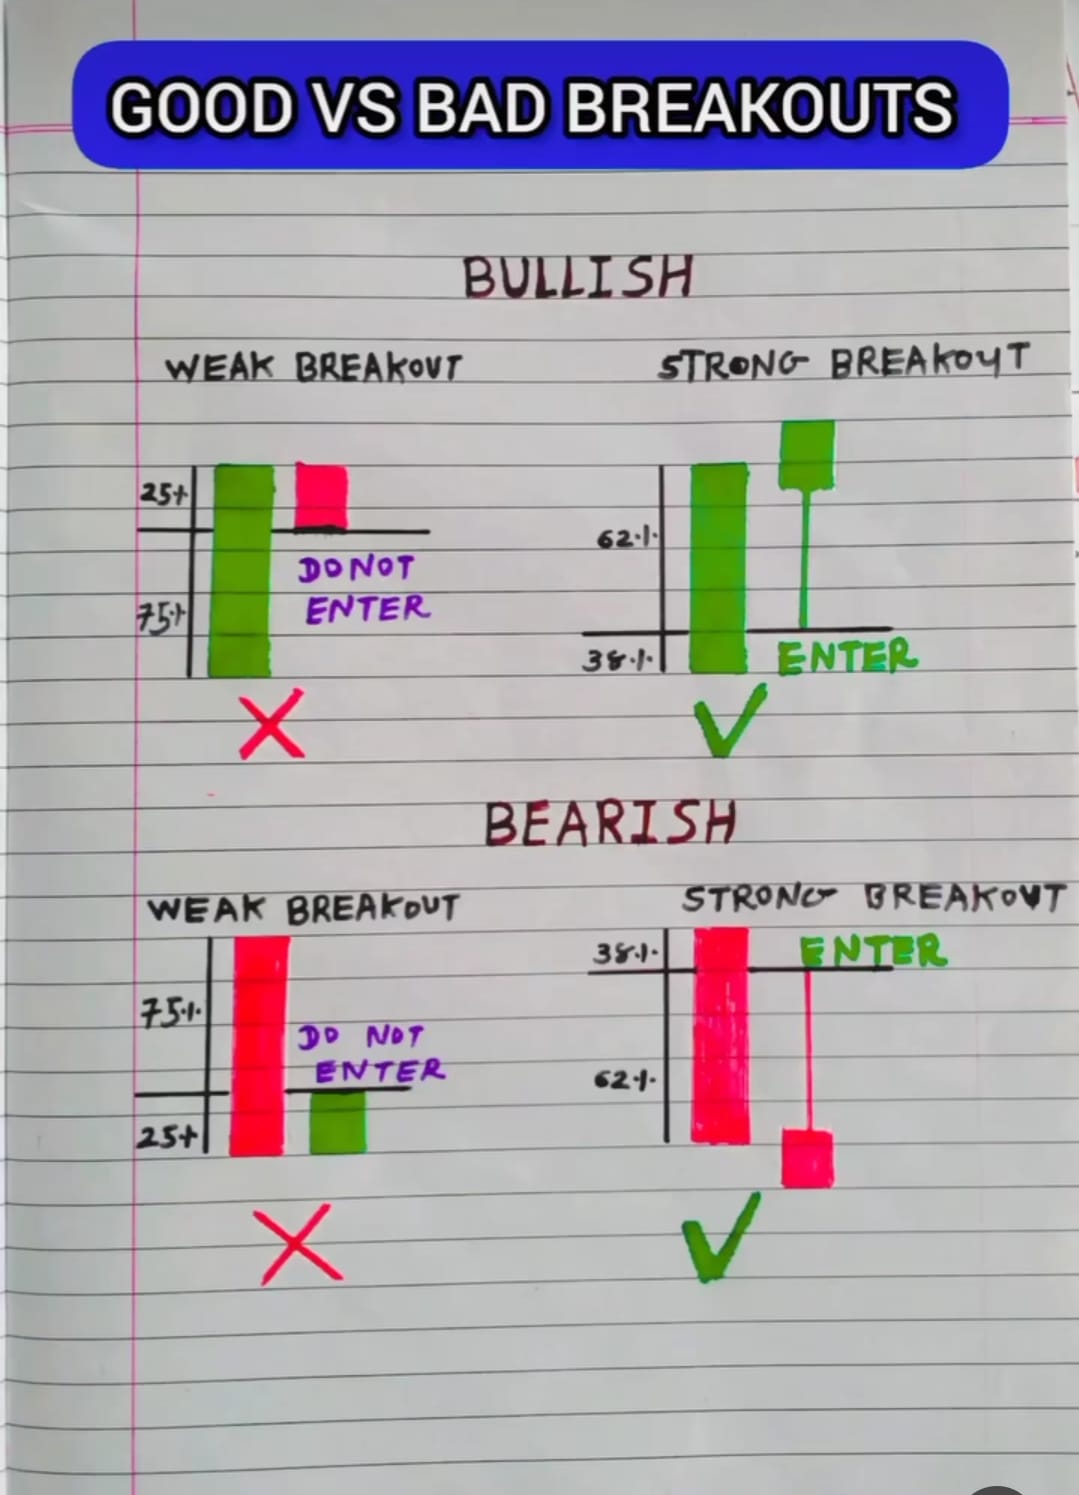 GOOD VS BAD BREAKOUTS
BULLISH
WEAK BREAKOUT
25+
75+
DO NOT
ENTER
STRONG BREAKOUT
62%
38%
ENTER
BEARISH
WEAK BREAKOUT
75%
DO NOT
ENTER
25+
STRONG BREAKOUT
38%
ENTER
62%